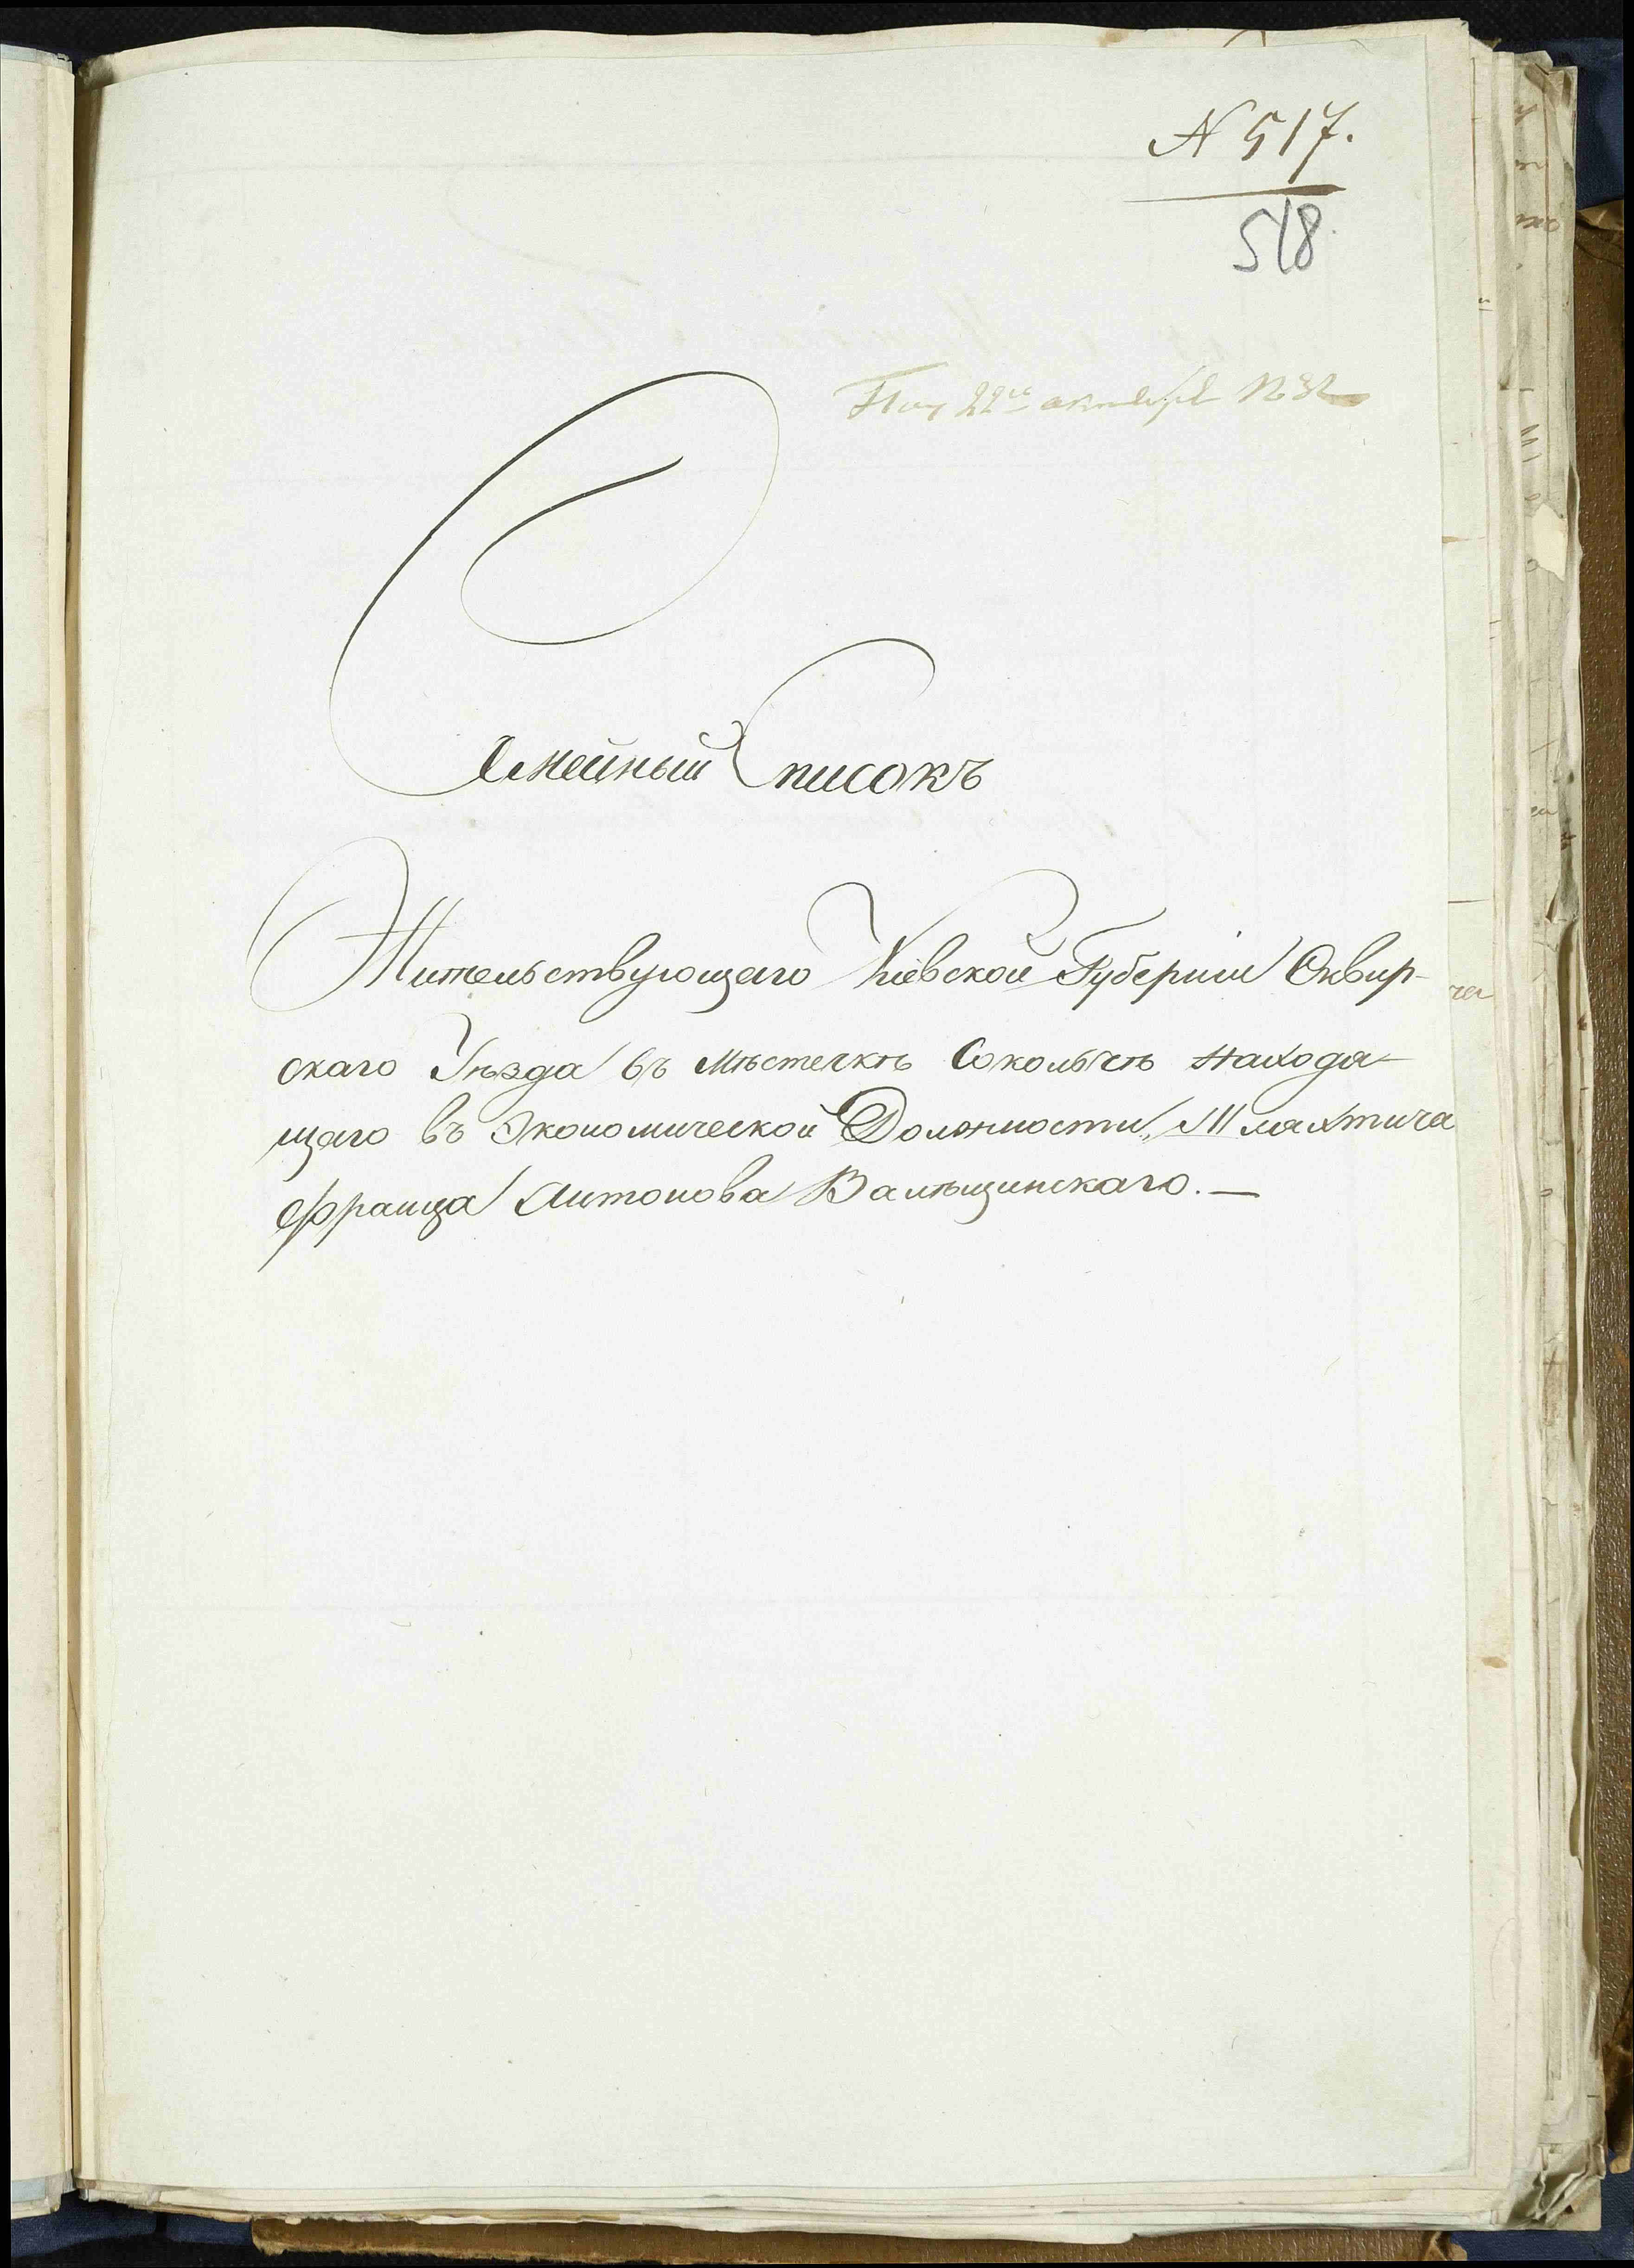 N 517.
518
22го октября
Семейный Списокъ
Жительствующаго Кіевской Губерніи Сквир-
скаго Уѣзда въ Мѣстечкѣ Соколычѣ находя-
щаго въ Экономической Должности, Шляхтича
Франца Антонова Валѣщинскаго. —